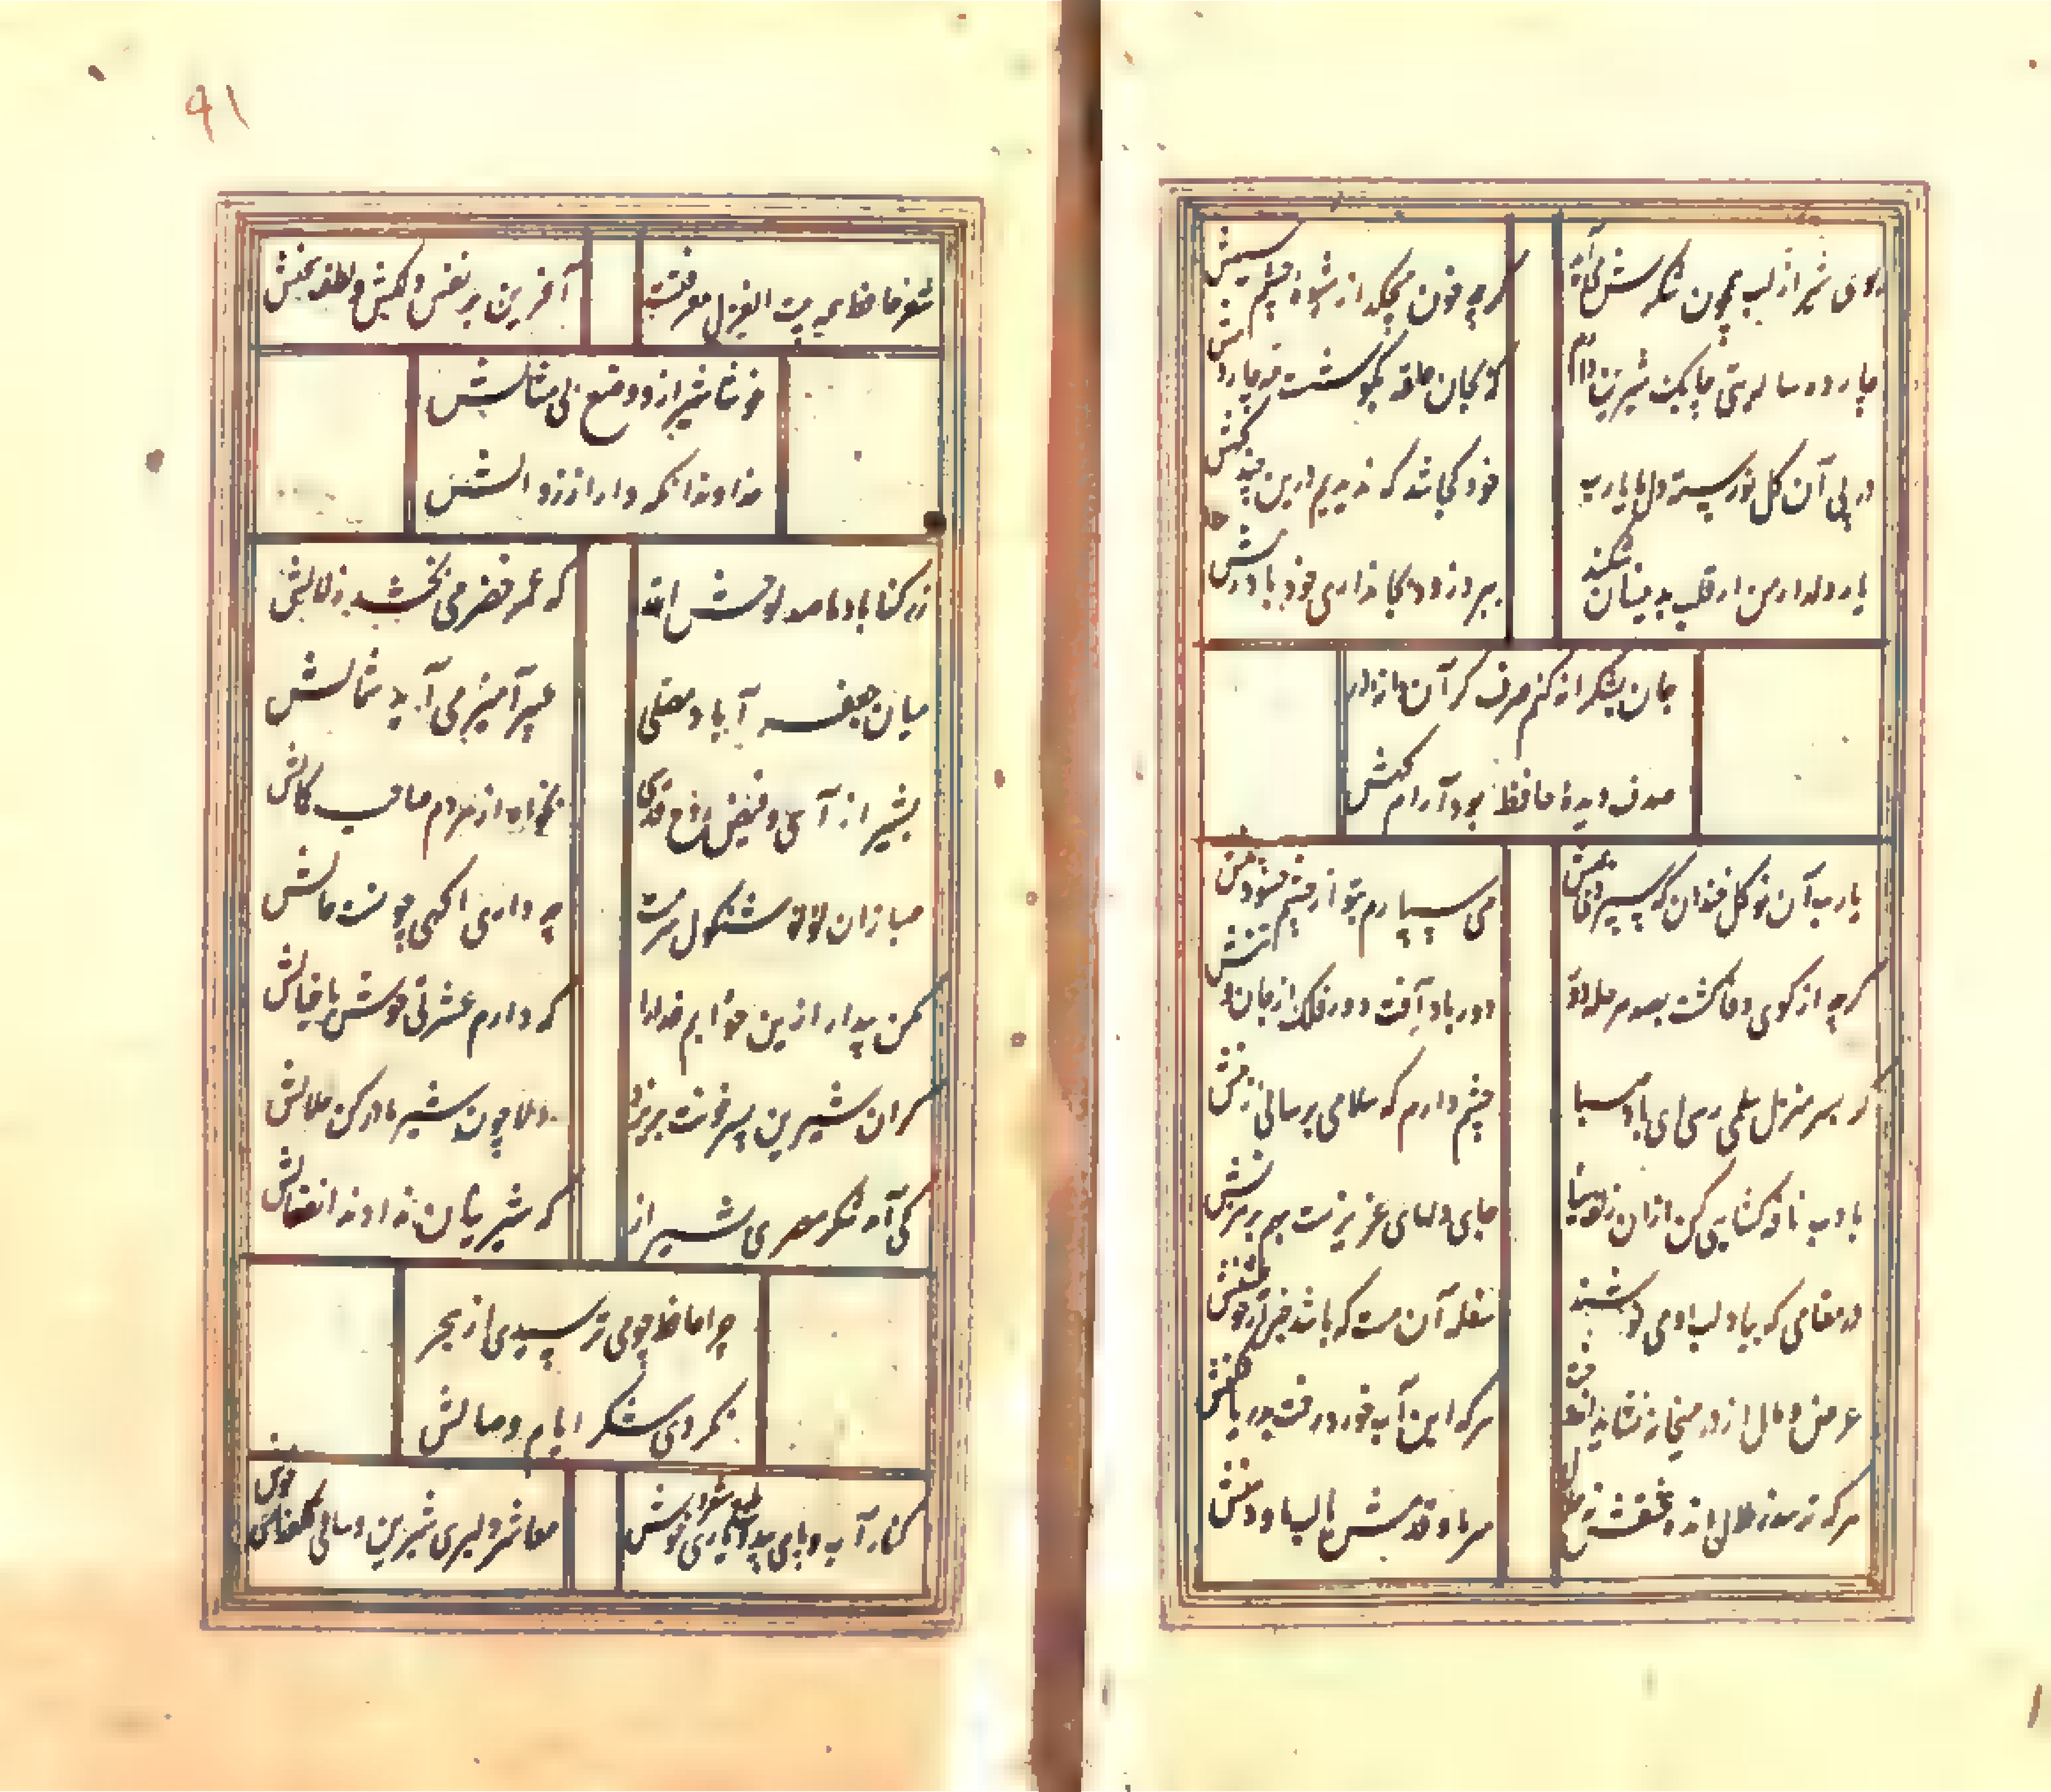 بوی شیر از لب همچون شکرش می‌آید
گرچه خون میچکد از شیوه چشم سیهش
چارده ساله بتی چابک شیرین دارم
که بجان حلقه بگوشست مه چاردهش
در پی آن گل نورسته دل ما یا رب
خود کجا شد که ندیدیم درین چند گهش
یار دلدار من ار قلب بدینسان شکند
ببرد زود بجانداری خود پادشهش
جان بشکرانه کنم صرف گر آن دانه در
صدف دیدهٔ حافظ بود آرام گهش
یا رب آن نوگل خندان که سپردی بمنش
می سپارم بتو از چشم حسود چمنش
گرچه از کوی وفا گشت بصد مرحله دور
دور باد آفت دور فلک از جان و تنش
گر بسر منزل سلمی رسی ای باد صبا
چشم دارم که سلامی برسانی ز منش
بادب نافه گشایی کن از آن زلف سیاه
جای دلهای عزیزست بهم بر مزنش
در مقامی که بیاد لب او می نوشند
سفله آن مست که باشد خبر از خویشتنش
عرض و مال از در میخانه نشاید اندوخت
هرکه این آب خورد رخت بدریا فکنش
هرکه ترسد ز ملال انده عشقش نه حلال
سر ما و قدمش یا لب ما و دهنش
۹۱
شعر حافظ همه بیت الغزل معرفتست
آفرین بر نفس دلکش و لطف سخنش
خوشا شیراز و وضع بی مثالش
خداوندا نگه دار از زوالش
ز رکناباد ما صد لوحش الله
که عمر خضر می بخشد زلالش
میان جعفرآباد و مصلی
عبیرآمیز می آید شمالش
بشیراز آی و فیض روح قدسی
بخواه از مردم صاحب کمالش
صبا زان لولی شنگول سرمست
چه داری آگهی چونست حالش
مکن بیدار ازین خوابم خدا را
که دارم عشرتی خوش با خیالش
گر آن شیرین پسر خونت بریزد
دلا چون شیر مادر کن حلالش
که نام شکر مصری شیراز
که شیرینان ندادند انفعالش
چرا حافظ چو می ترسیدی از هجر
نکردی شکر ایام وصالش
کنار آب و پای بید و طبع شعر و یاری خوش
معاشر دلبری شیرین و ساقی گلعذاری خوش